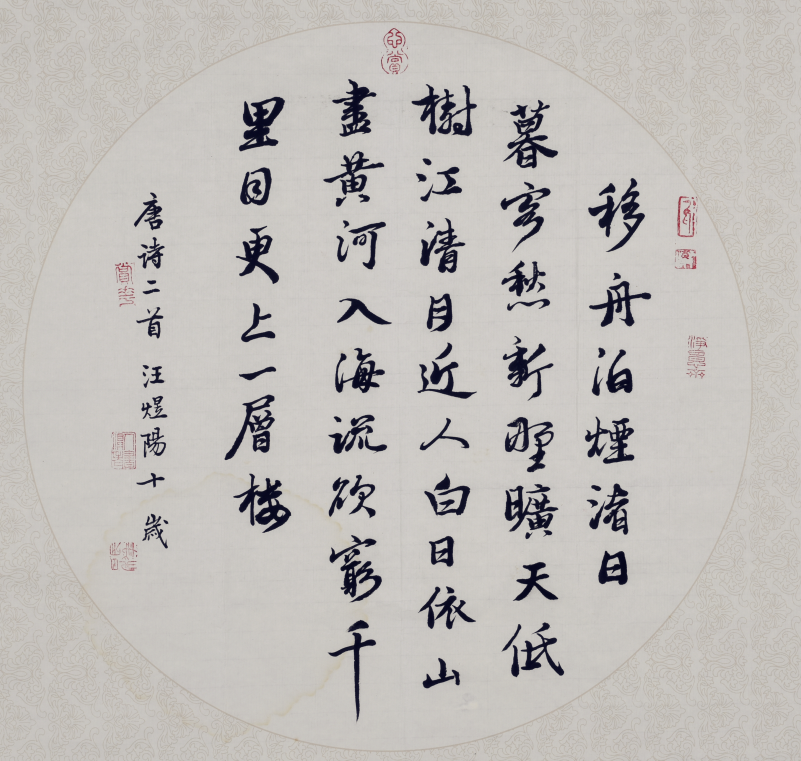 移舟泊煙渚日
暮客愁新野曠天低
樹江清月近人白日依山
盡黄河入海流欲窮千
里目更上一層楼
唐詩二首 汪煜陽十歲